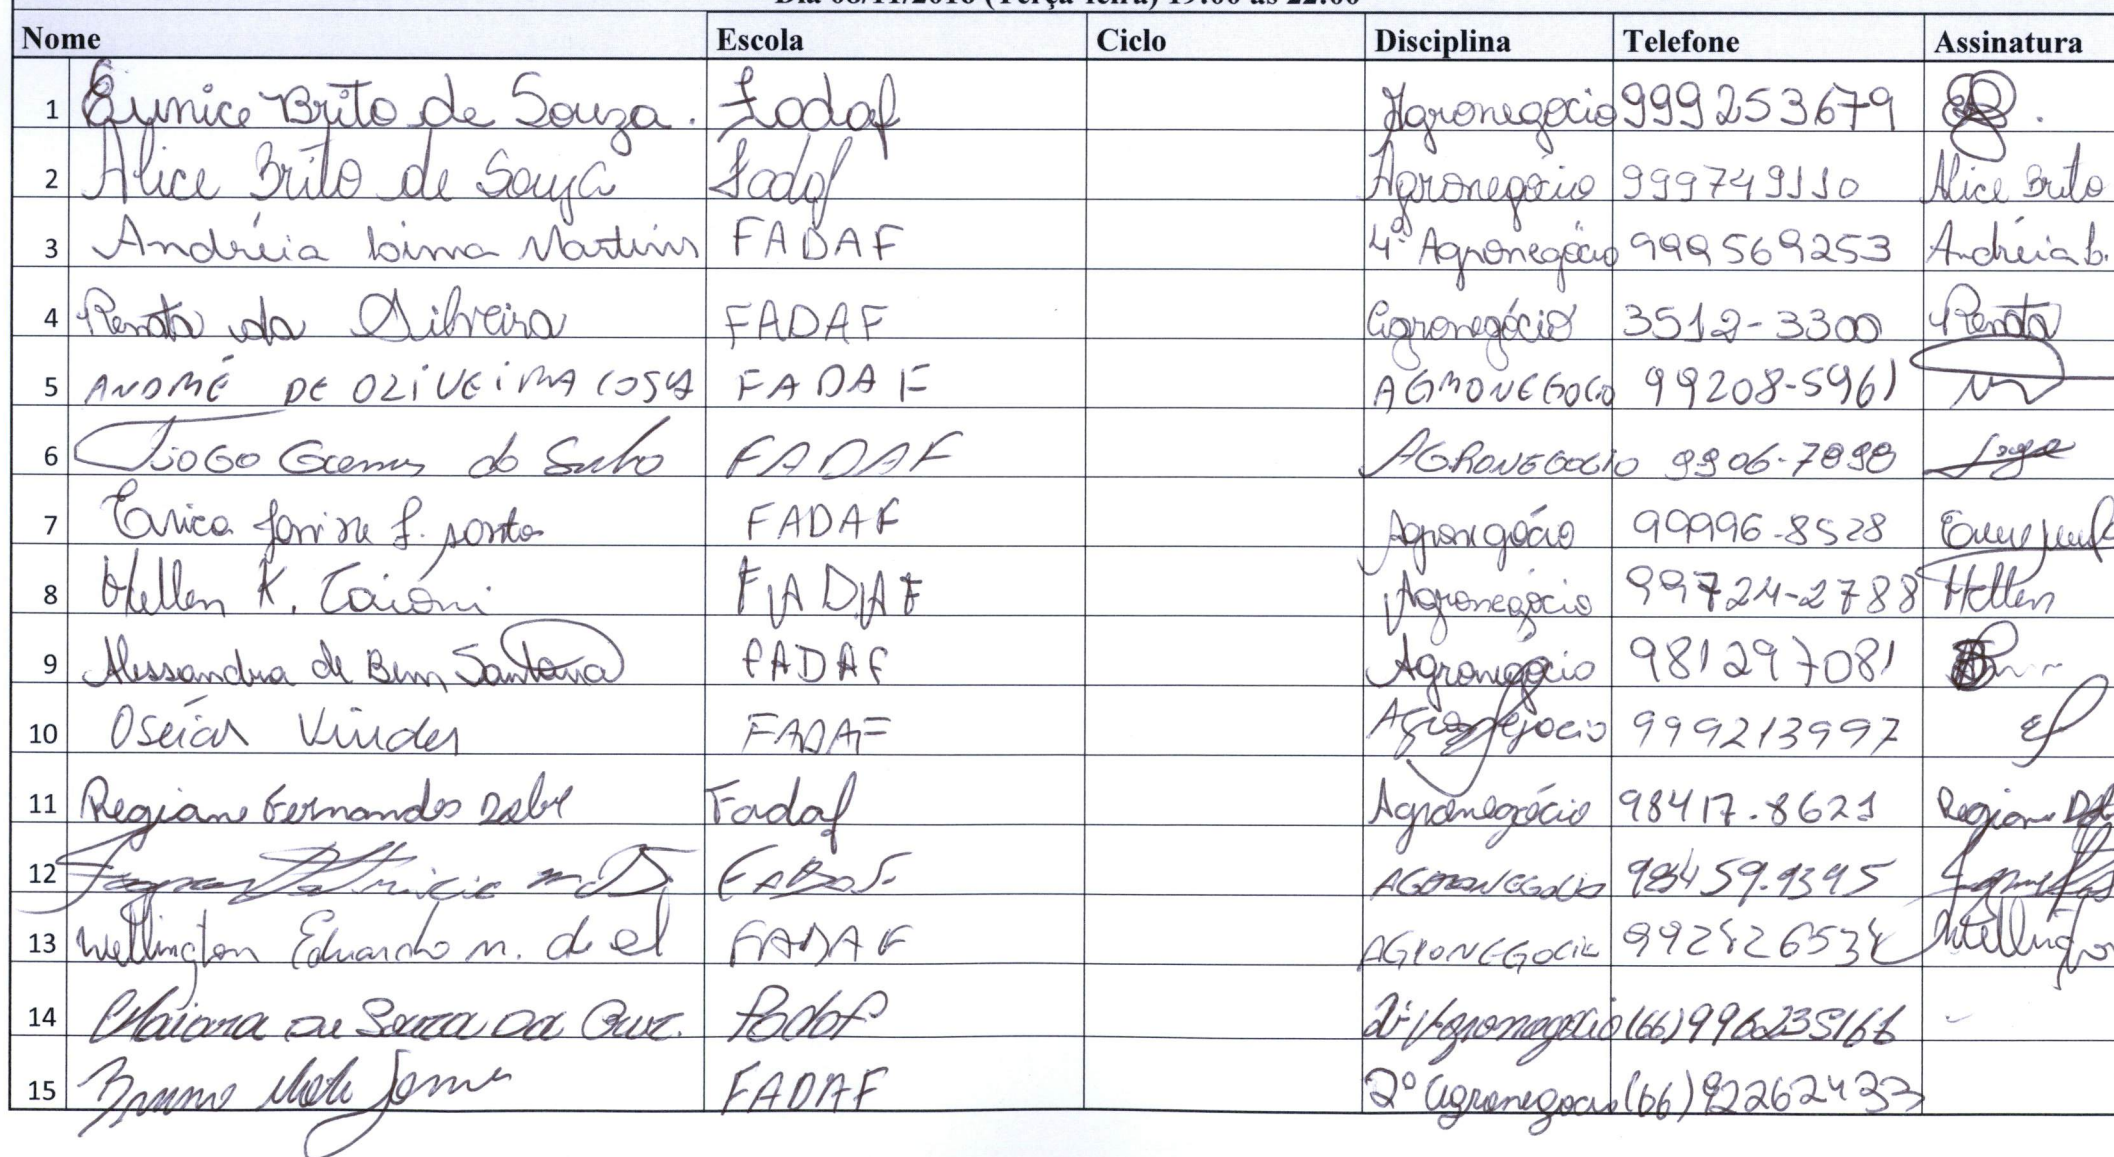 Dia 08/11/2016 (Terça-feira) 19:00 às 22:00
Nome Escola Ciclo Disciplina Telefone Assinatura
1 Eunice Brito de Souza. Fadaf Agronegócio 999253679
2 Alice Brito de Souza Fadaf Agronegócio 999749110 Alice Brito
3 Andréia Lima Martins FADAF 4º Agronegócio 999569253 Andréia L.
4 Renata da Silveira FADAF agronegócio 3512-3300 Renata
5 ANDRÉ DE OLIVEIRA COSTA FADAF AGRONEGOCO 99208-5961
6 Tiogo Gomes do FADAF AGRONEGOCIO 9906-7898
7 Erica Janine f. FADAF Agronegócio 99996-8528
8 Hellen K. Caioni FADAF Agronegócio 99724-2788 Hellen
9 Alessandra de Bem Santana FADAF Agronegócio 981297081
10 Oséias FADAF Agronegocio 999213997
11 Regiane Fernandes Dalri Fadaf Agronegócio 98417.8621 Regiane
12 AGRONEGOCIO 98459.9395
13 Wellington Eduardo m. d el FADAF AGRONEGOCIO Wellington
14 Maiara de Souza da Cruz. Fadaf 2º Agronegócio (66)
15 Bruno FADAF 2º agronegocio (66) 92262433